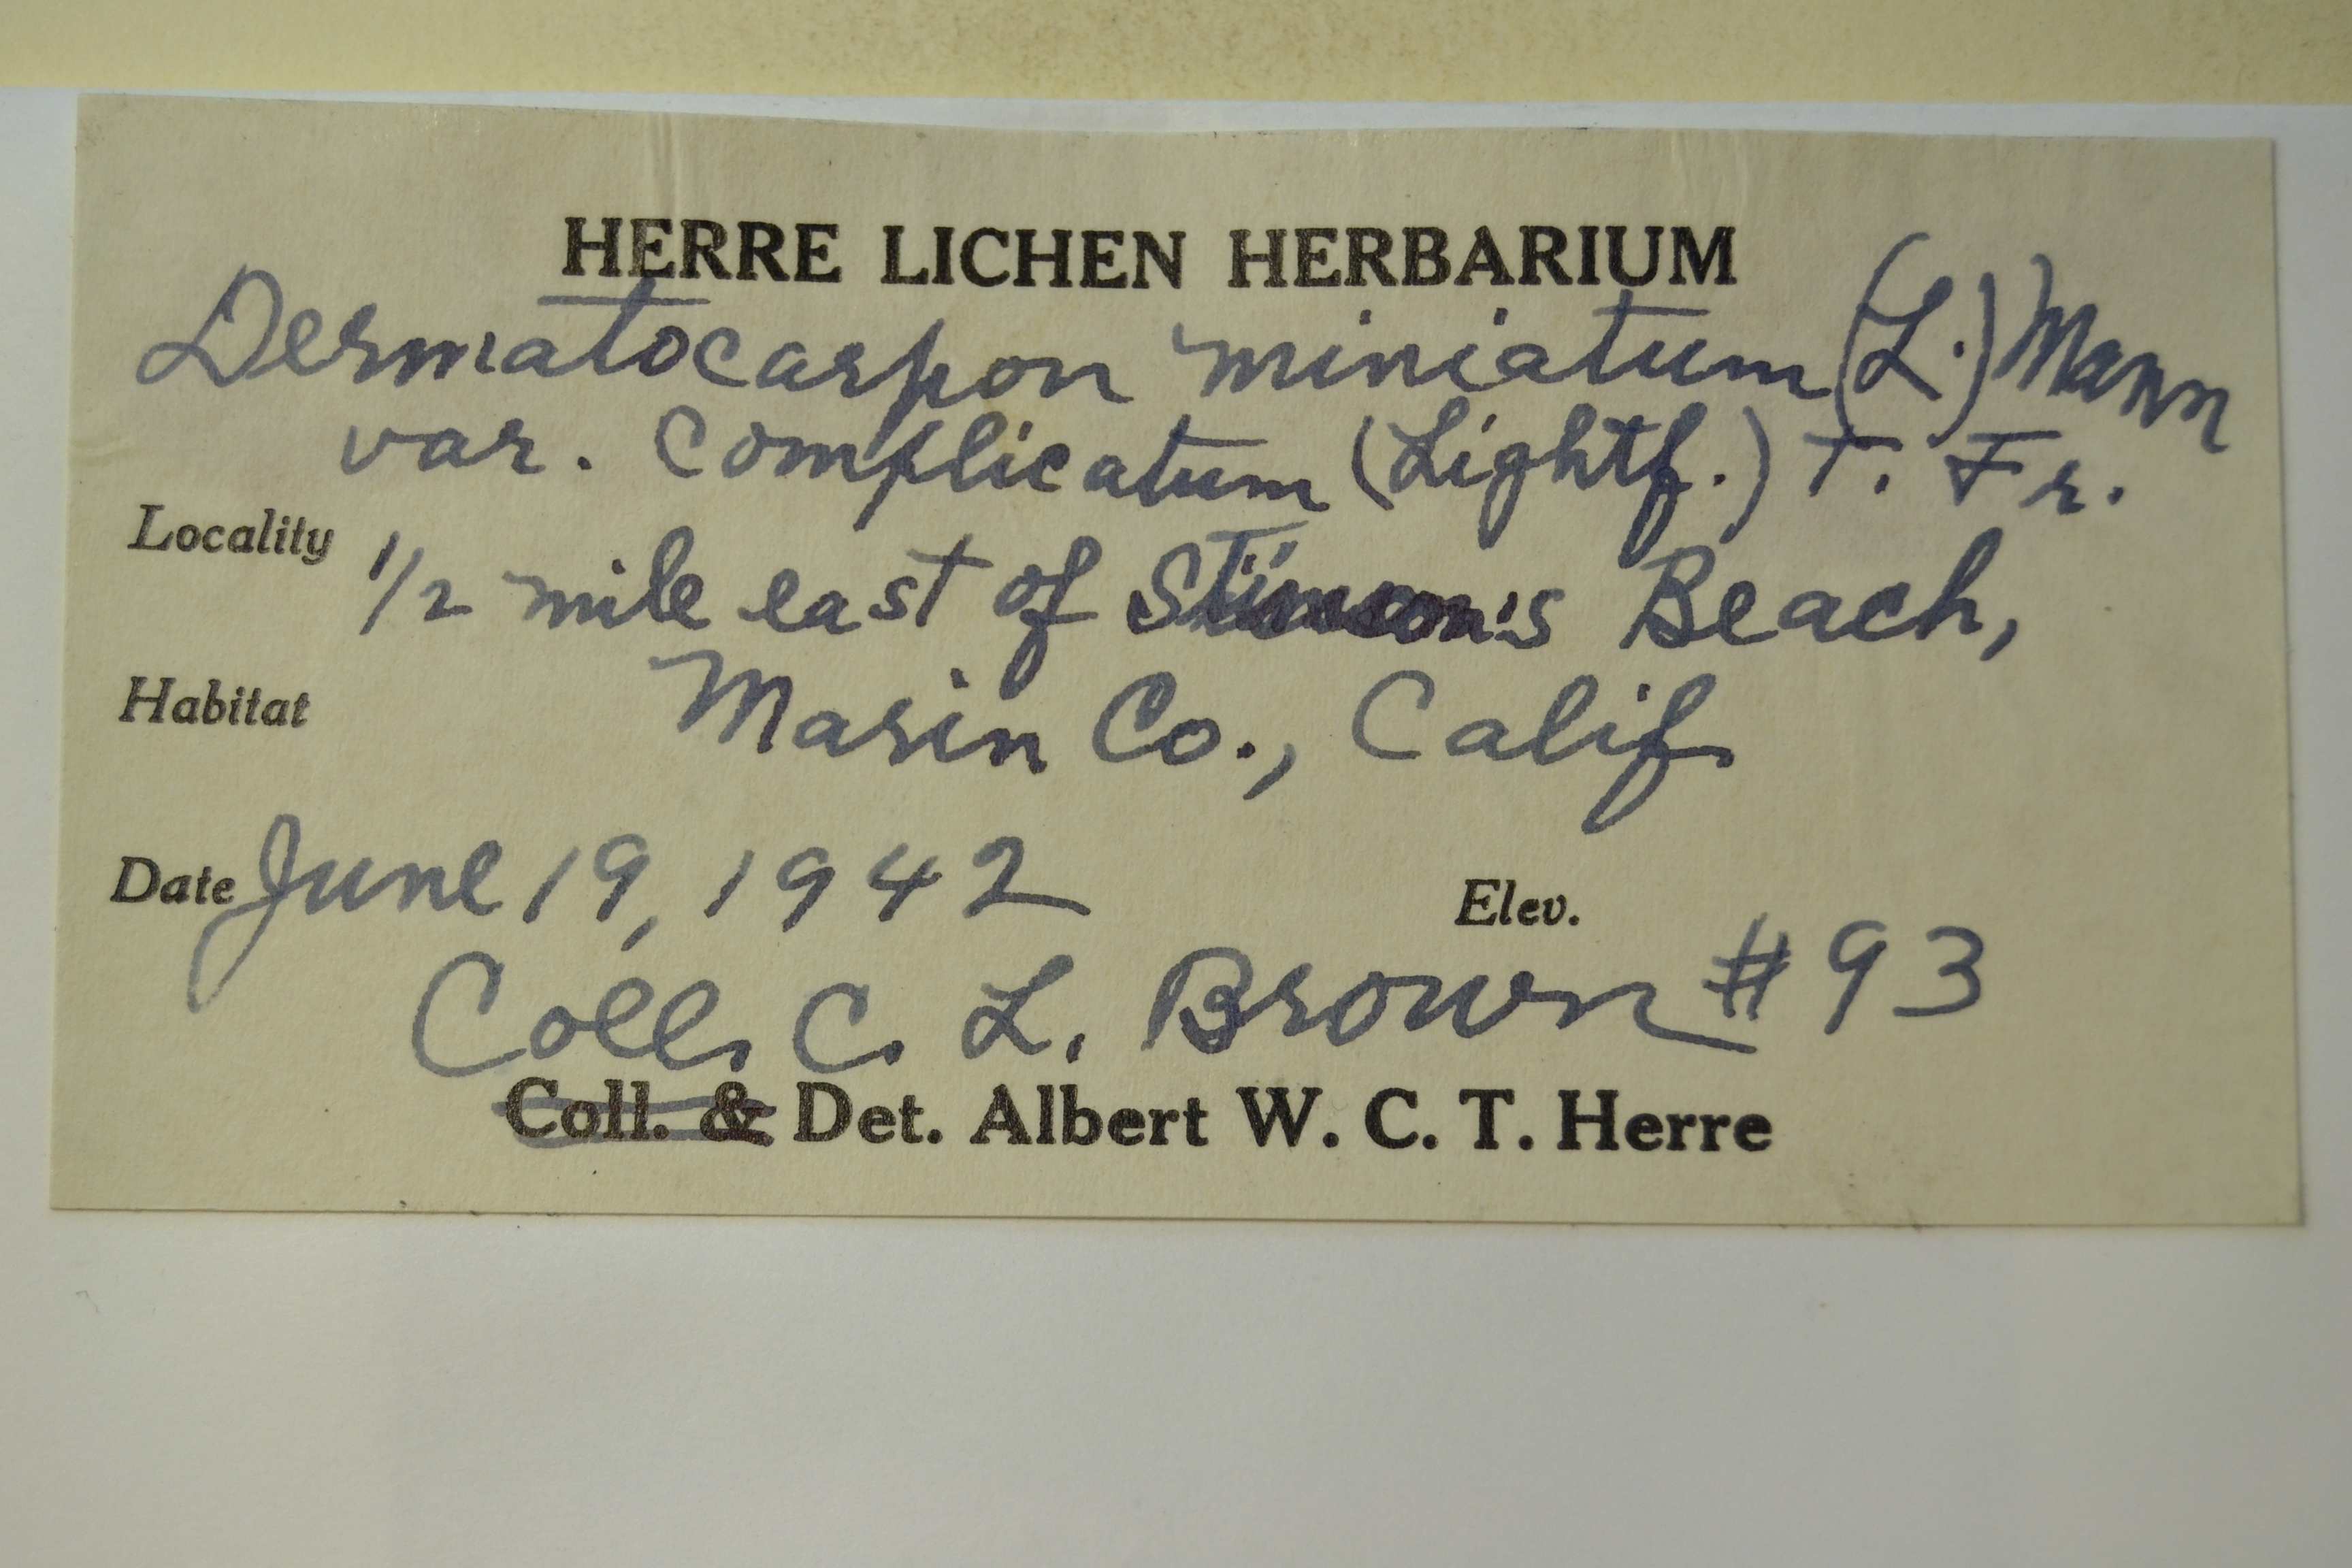 HERRE LICHEN HERBARIUM
Dermatocarpon miniatum (L.) Mann
var. complicatum (Lightf.) T. Fr.
Locality 1/2 mile east of Beach,
Habitat Marin Co., Calif.
Date June 19, 1942 Elev.
Coll. C. L. Brown #93
Coll. & Det. Albert W. C. T. Herre